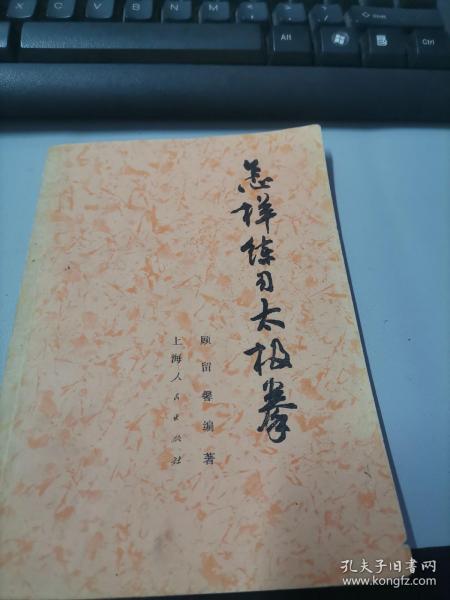 Shift
Alt
Ctrl
怎样练习太极拳
顾留馨编著
上海人民出版社
孔夫子旧书网
www.kongfz.com